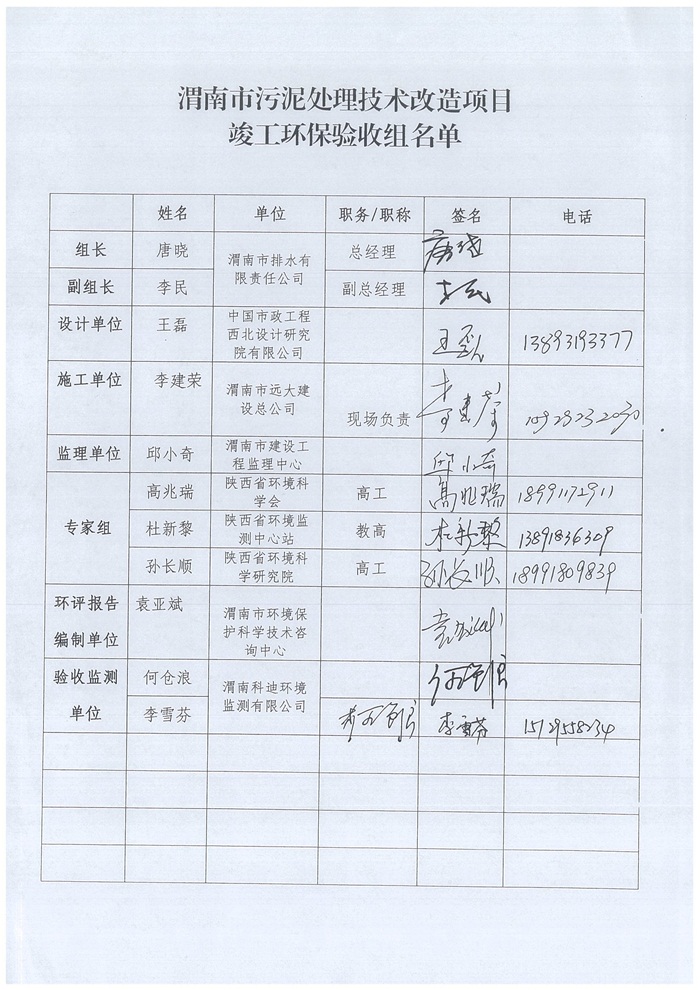 渭南市污泥处理技术改造项目
竣工环保验收组名单
姓名 单位 职务/职称 签名 电话
组长 唐晓 渭南市排水有限责任公司 总经理 唐晓
副组长 李民 副总经理 李民
设计单位 王磊 中国市政工程西北设计研究院有限公司 王磊 13893193377
施工单位 李建荣 渭南市远大建设总公司 现场负责 李建荣
监理单位 邱小奇 渭南市建设工程监理中心 邱小奇
专家组 高兆瑞 陕西省环境科学会 高工 高兆瑞 18991172911
杜新黎 陕西省环境监测中心站 教高 杜新黎 13891836309
孙长顺 陕西省环境科学研究院 高工 孙长顺 18991809839
环评报告编制单位 袁亚斌 渭南市环境保护科学技术咨询中心 袁亚斌
验收监测单位 何仓浪 渭南科迪环境监测有限公司 何仓浪
李雪芬 李雪芬 15129558234